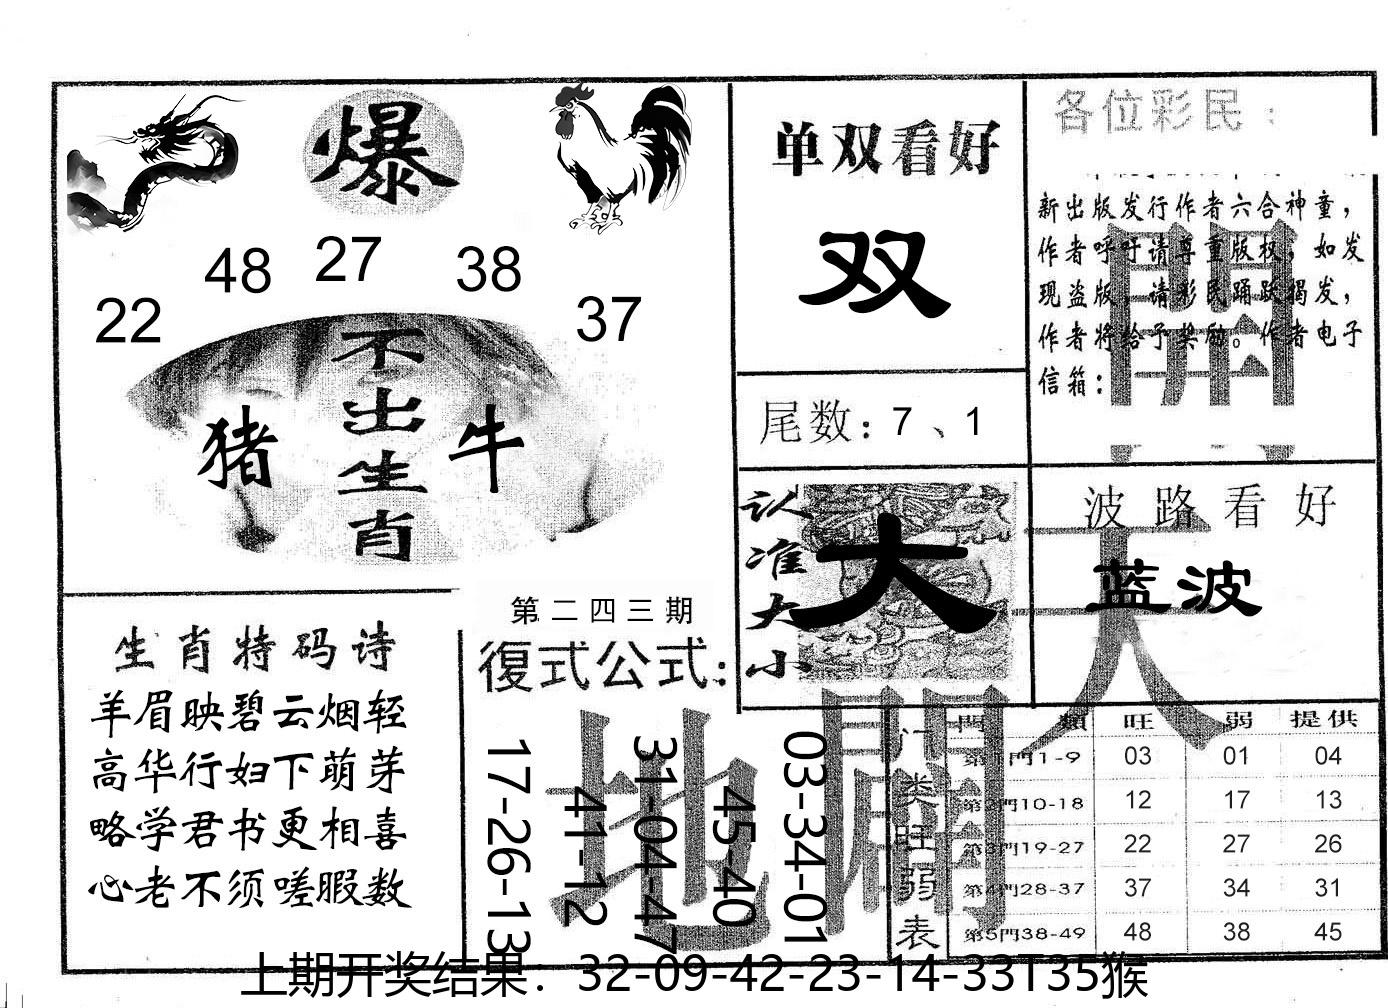 爆
22 48 27 38 37
不出生肖
猪 牛
生肖特码诗
羊眉映碧云烟轻
高华行妇下萌芽
略学君书更相喜
心老不须嗟暇数
第二四三期
復式公式:
17-26-13
41-12
31-04-47
45-40
03-34-01
单双看好
双
尾数: 7、1
认准大小
大
各位彩民:
新出版发行作者六合神童，
作者呼吁请尊重版权，如发
现盗版，请彩民踊跃揭发，
作者将给予奖励。作者电子
信箱:
波路看好
蓝波
天
地
開
門类旺弱表
門 類 旺 弱 提供
第1門1-9 03 01 04
第2門10-18 12 17 13
第3門19-27 22 27 26
第4門28-37 37 34 31
第5門38-49 48 38 45
上期开奖结果：32-09-42-23-14-33T35猴